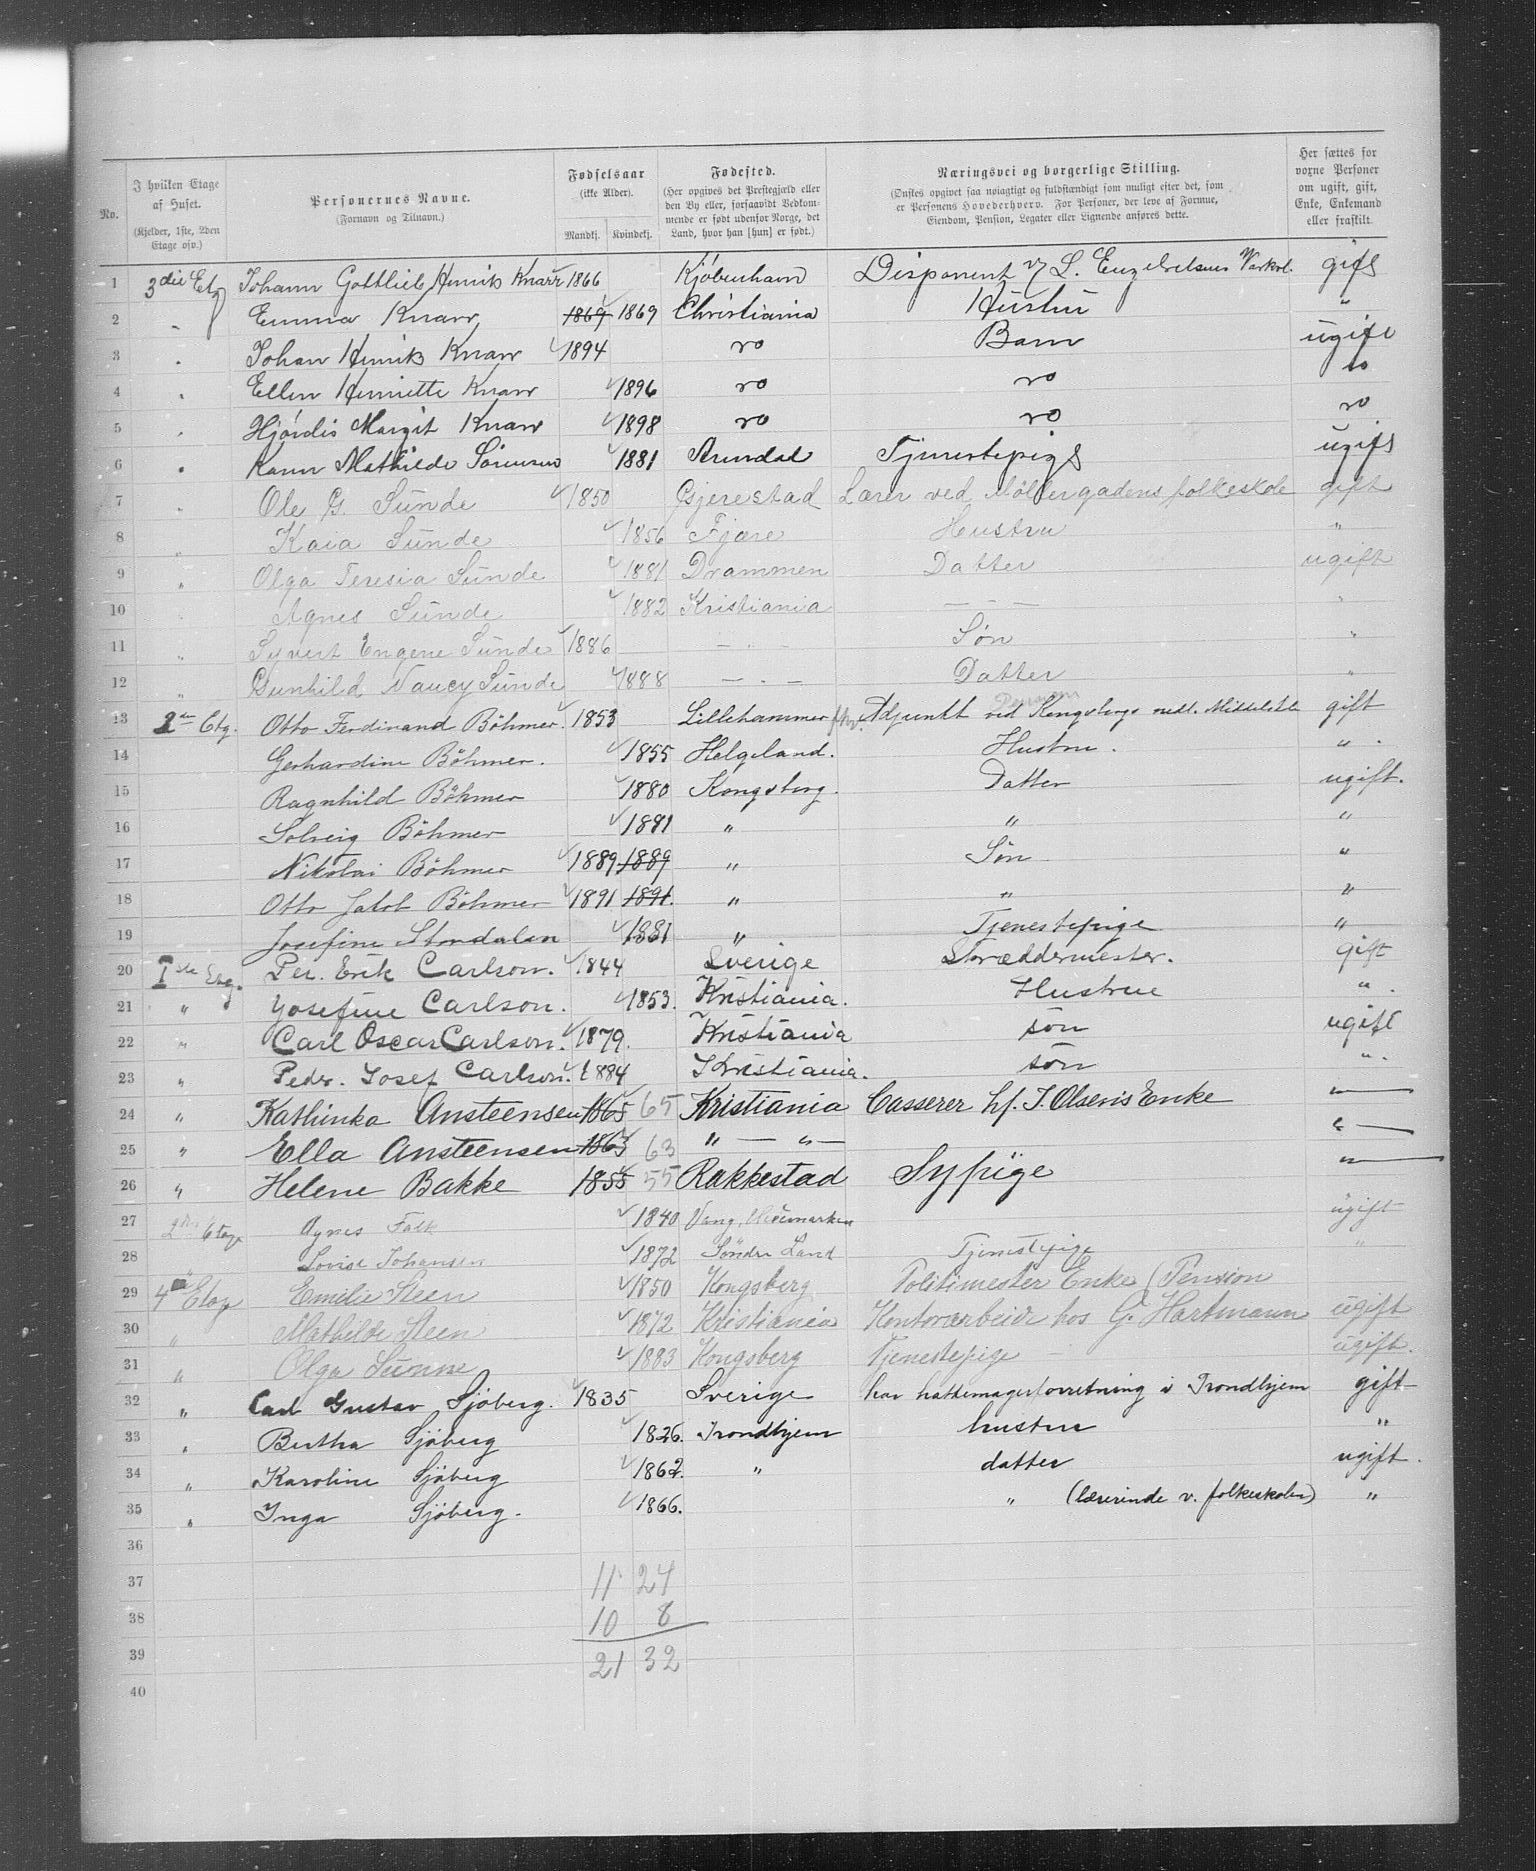 No.
I hvilken Etage af Huset.
(Kjelder, 1ste, 2den Etage osv.)
Personernes Navne.
(Fornavn og Tilnavn.)
Fødselsaar
(ikke Alder).
Mandkj. Kvindekj.
Fødested.
(Her opgives det Prestegjæld eller den By eller, forsaavidt Vedkommende er født udenfor Norge, det Land, hvor han [hun] er født.)
Næringsvei og borgerlige Stilling.
(Ønskes opgivet saa nøiagtigt og fuldstændigt som muligt efter det, som er Personens Hovederhverv. For Personer, der leve af Formue, Eiendom, Pension, Legater eller Lignende anføres dette.)
Her sættes for voxne Personer om ugift, gift, Enke, Enkemand eller fraskilt.
1 3die Etg Johann Gottlieb Henrik Knarr 1866 Kjöbenhavn Disponent v/ L. gift
2 " Emma Knarr 1869 1869 Christiania Hustru "
3 " Johan Henrik Knarr 1894 do Barn ugift
4 " Ellen Henriette Knarr 1896 do do do
5 " Hjördis Margit Knarr 1898 do do do
6 " Karen Mathilde Sörensen 1881 Arendal Tjenestepige ugift
7 " Ole G. Sunde 1850 Gjerestad Lærer ved Möllergadens folkeskole gift
8 " Kaia Sunde 1856 Fjære Hustru "
9 " Olga Teresia Sunde 1881 Drammen Datter ugift
10 Agnes Sunde 1882 Kristiania — — — "
11 " Syvert Eugene Sunde 1886 — . — Søn "
12 " Gunhild Nancy Sunde 1888 — . — Datter "
13 2den Etg. Otto Ferdinand Böhmer 1853 Lillehammer Adjunkt ved Kongsbergs gift
14 Gerhardine Böhmer. 1855 Helgeland. Hustru. " .
15 Ragnhild Böhmer 1880 Kongsberg. Datter ugift.
16 Solveig Böhmer 1881 " " "
17 Nikolai Böhmer 1889 1889 " Søn "
18 Otto Jakob Böhmer 1891 1891. " " "
19 Josefine Stordalen 1881 " Tjenestepige "
20 1ste Etg. Per. Erik Carlson. 1844 Sverige Skræddermester. gift
21 " Josefine Carlson. 1853. Kristiania. Hustrue " .
22 " Carl Oscar Carlson. 1879. Kristiania søn ugift
23 " Peder. Josef Carlson. 1884 Kristiania. søn " .
24 " Kathinka Ansteensen 1865 65 Kristiania Casserer hf. J. Olsens Enke "
25 " Ella Ansteensen 1863 63 " — " — "
26 " Helene Bakke 1855 55 Rakkestad Sypige "
27 2den Etage Agnes Falk 1840 Vang, Hedemarken ugift
28 " Lovise Johansen 1872 Söndre Land Tjenestepige "
29 4 Etage Emilie Steen 1850 Kongsberg Politimester Enke (Pension
30 " Mathilde Steen 1872 Kristiania Kontorarbeide hos G. Hartmann ugift
31 " Olga Sunne 1883 Kongsberg Tjenestepige — ugift.
32 " Carl Gustav Sjöberg. 1835 Sverige har hattemagerforretning i Trondhjem gift
33 " Bertha Sjöberg 1826. Trondhjem hustru "
34 " Karoline Sjöberg 1862. " datter ugift.
35 " Inga Sjöberg. 1866. " (lærerinde v. folkeskolen) "
36
37 11 24
38 10 8
39 21 32
40